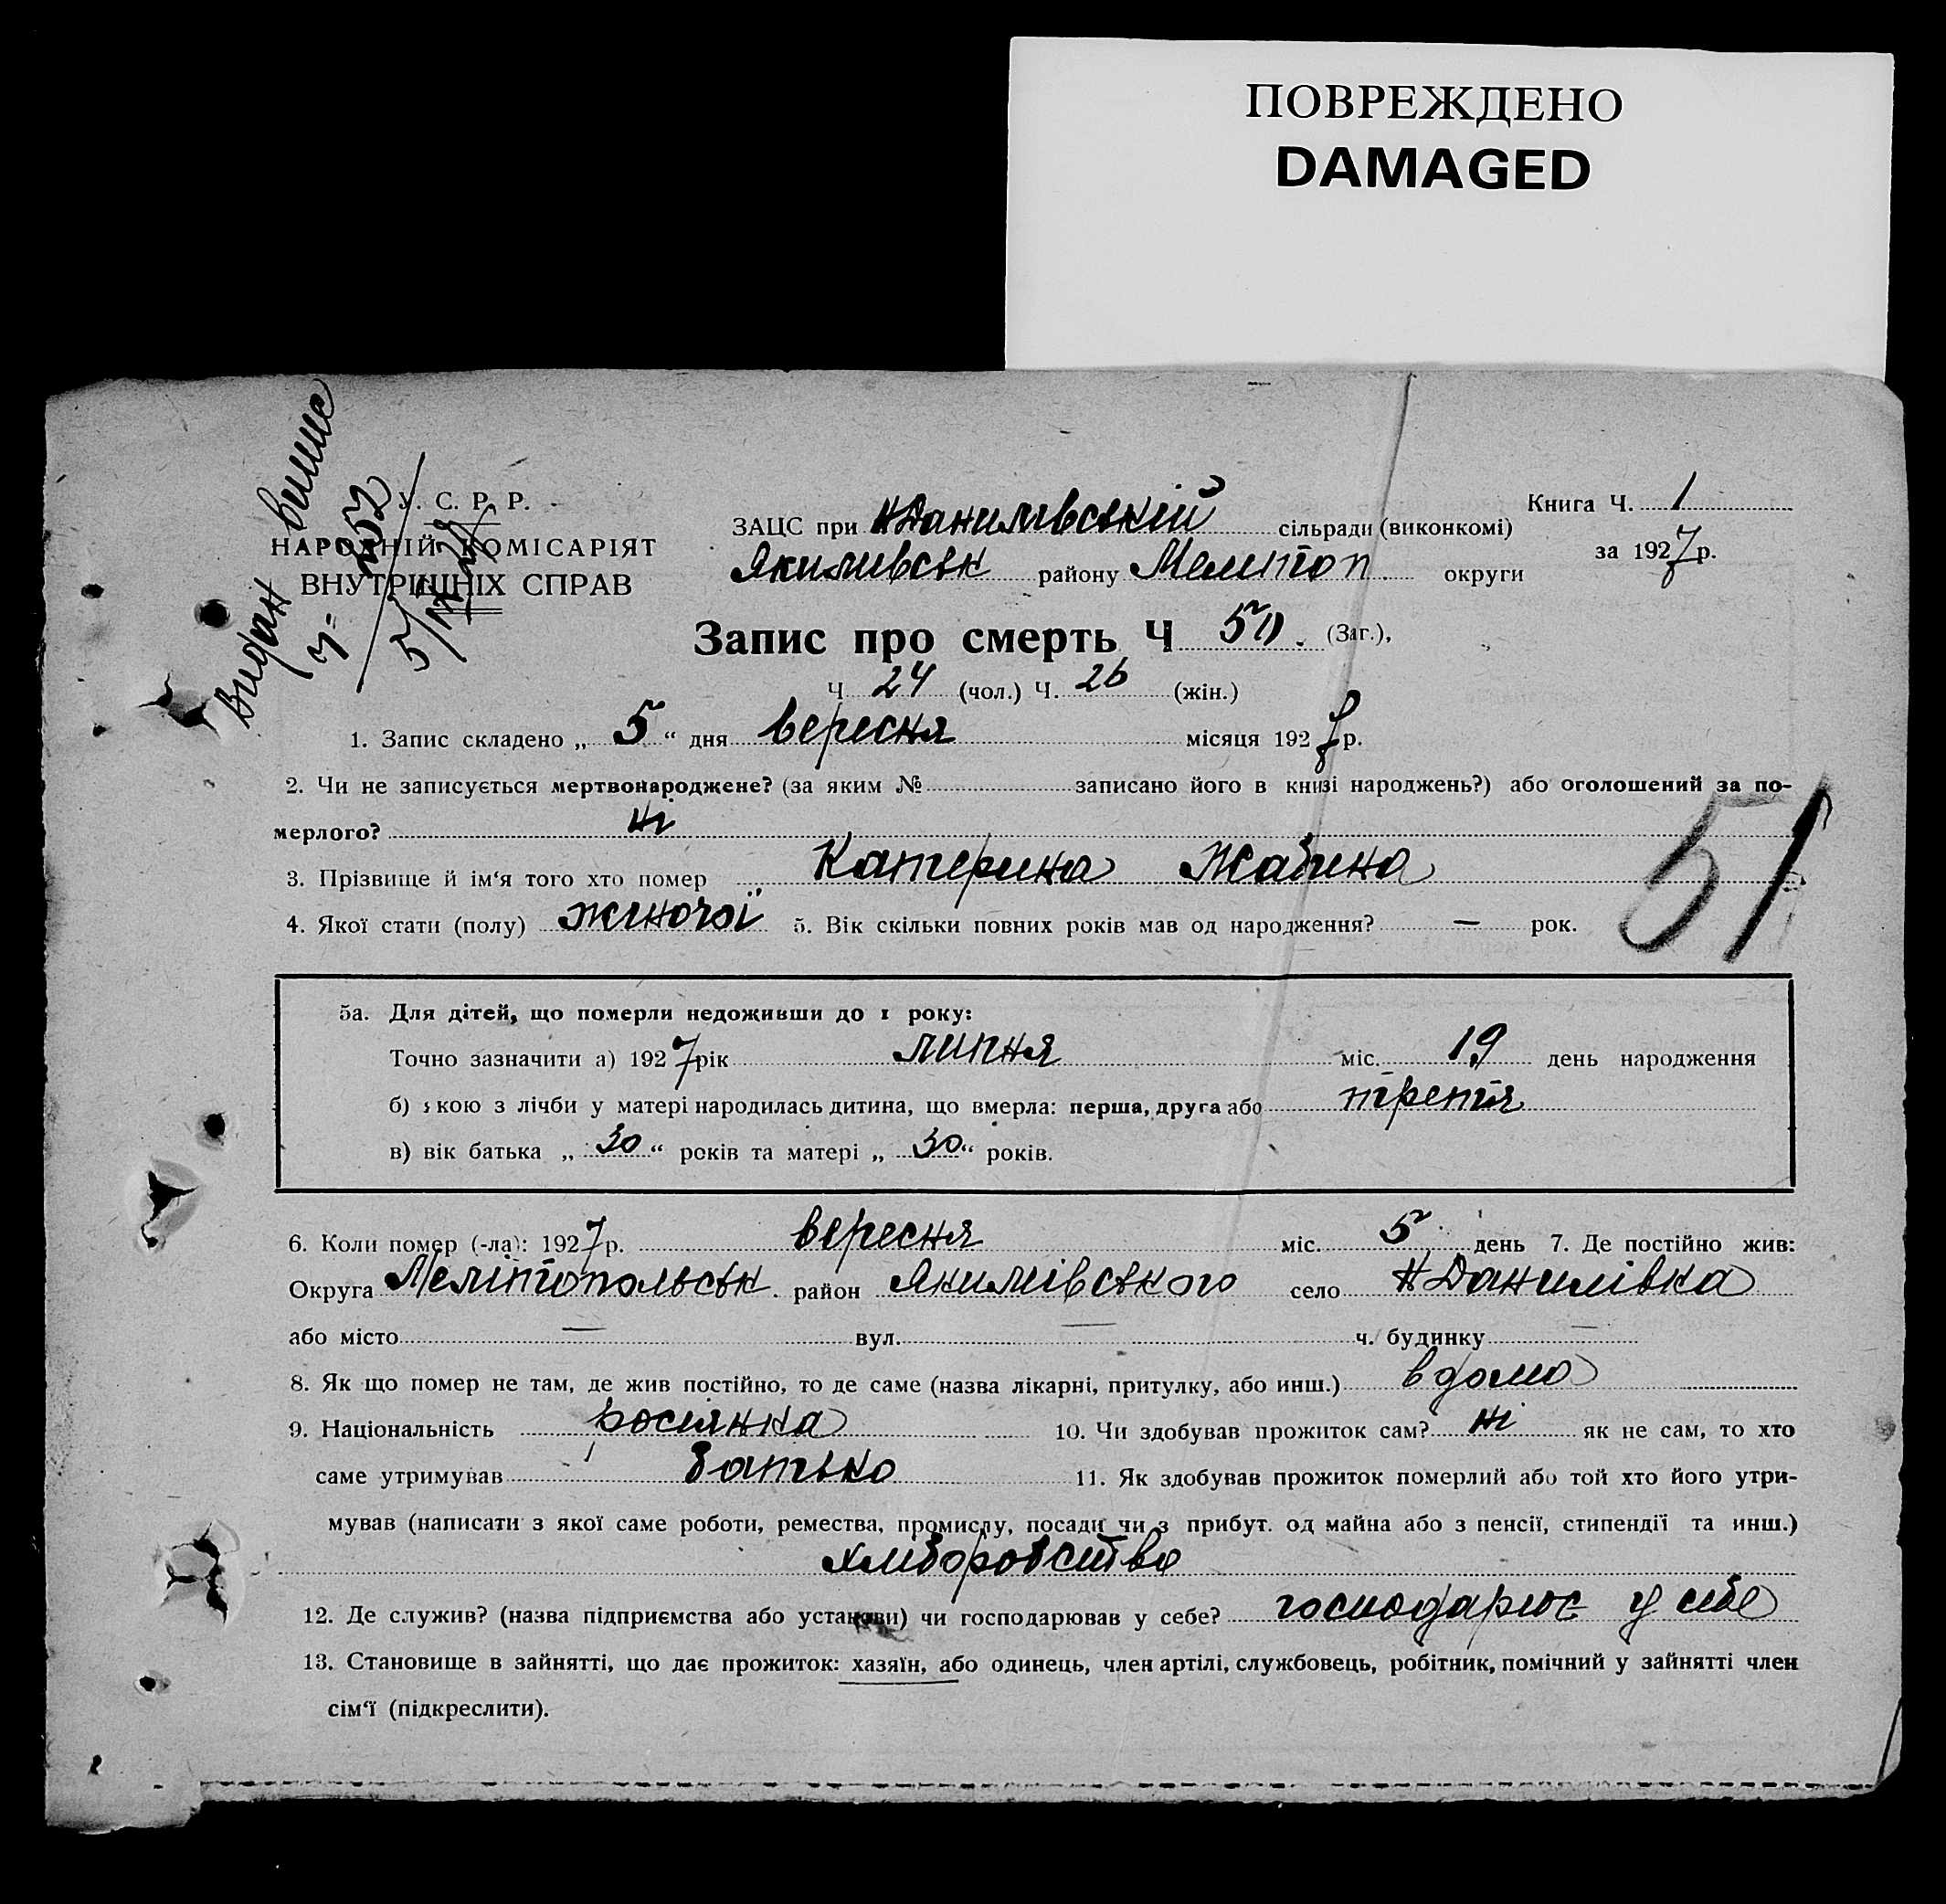 ПОВРЕЖДЕНО
DAMAGED
Видан випис
ч= 252
5/IX 27
У. С. Р. Р.
НАРОДНІЙ КОМІСАРІЯТ
ВНУТРІШНІХ СПРАВ
ЗАЦС при Н Данилівській сільради (виконкомі)
Якимивськ району Мелітоп. округи
Книга Ч. 1
за 1927 р.
Запис про смерть Ч 50. (Заг.),
Ч 24 (чол.) Ч. 26 (жін.)
1. Запис складено „ 5 “ дня вересня місяця 1927 р.
2. Чи не записується мертвонароджене? (за яким № записано його в книзі народжень?) або оголошений за по-
мерлого? ні
51
3. Прізвище й ім‘я того хто помер Катерина Жабина
4. Якої стати (полу) жіночої 5. Вік скільки повних років мав од народження? — рок.
5а. Для дітей, що померли недоживши до 1 року:
Точно зазначити а) 1927 рік липня міс. 19 день народження
б) якою з лічби у матері народилась дитина, що вмерла: перша, друга або третя
в) вік батька „ 30 “ років та матері „ 30 “ років.
6. Коли помер (-ла): 1927 р. вересня міс. 5 день 7. Де постійно жив:
Округа Мелітопольськ. район Якимівського село Н Данилівка
або місто — вул. — ч. будинку —
8. Як що помер не там, де жив постійно, то де саме (назва лікарні, притулку, або инш.) вдома
9. Національність росіянка 10. Чи здобував прожиток сам? ні як не сам, то хто
саме утримував батько 11. Як здобував прожиток померлий або той хто його утри-
мував (написати з якої саме роботи, ремества, промислу, посади чи з прибут. од майна або з пенсії, стипендії та инш.)
хліборобство
12. Де служив? (назва підприємства або установи) чи господарював у себе? господарює у себе
13. Становище в зайнятті, що дає прожиток: хазяїн, або одинець, член артілі, службовець, робітник, помічний у зайнятті член
сім‘ї (підкреслити).